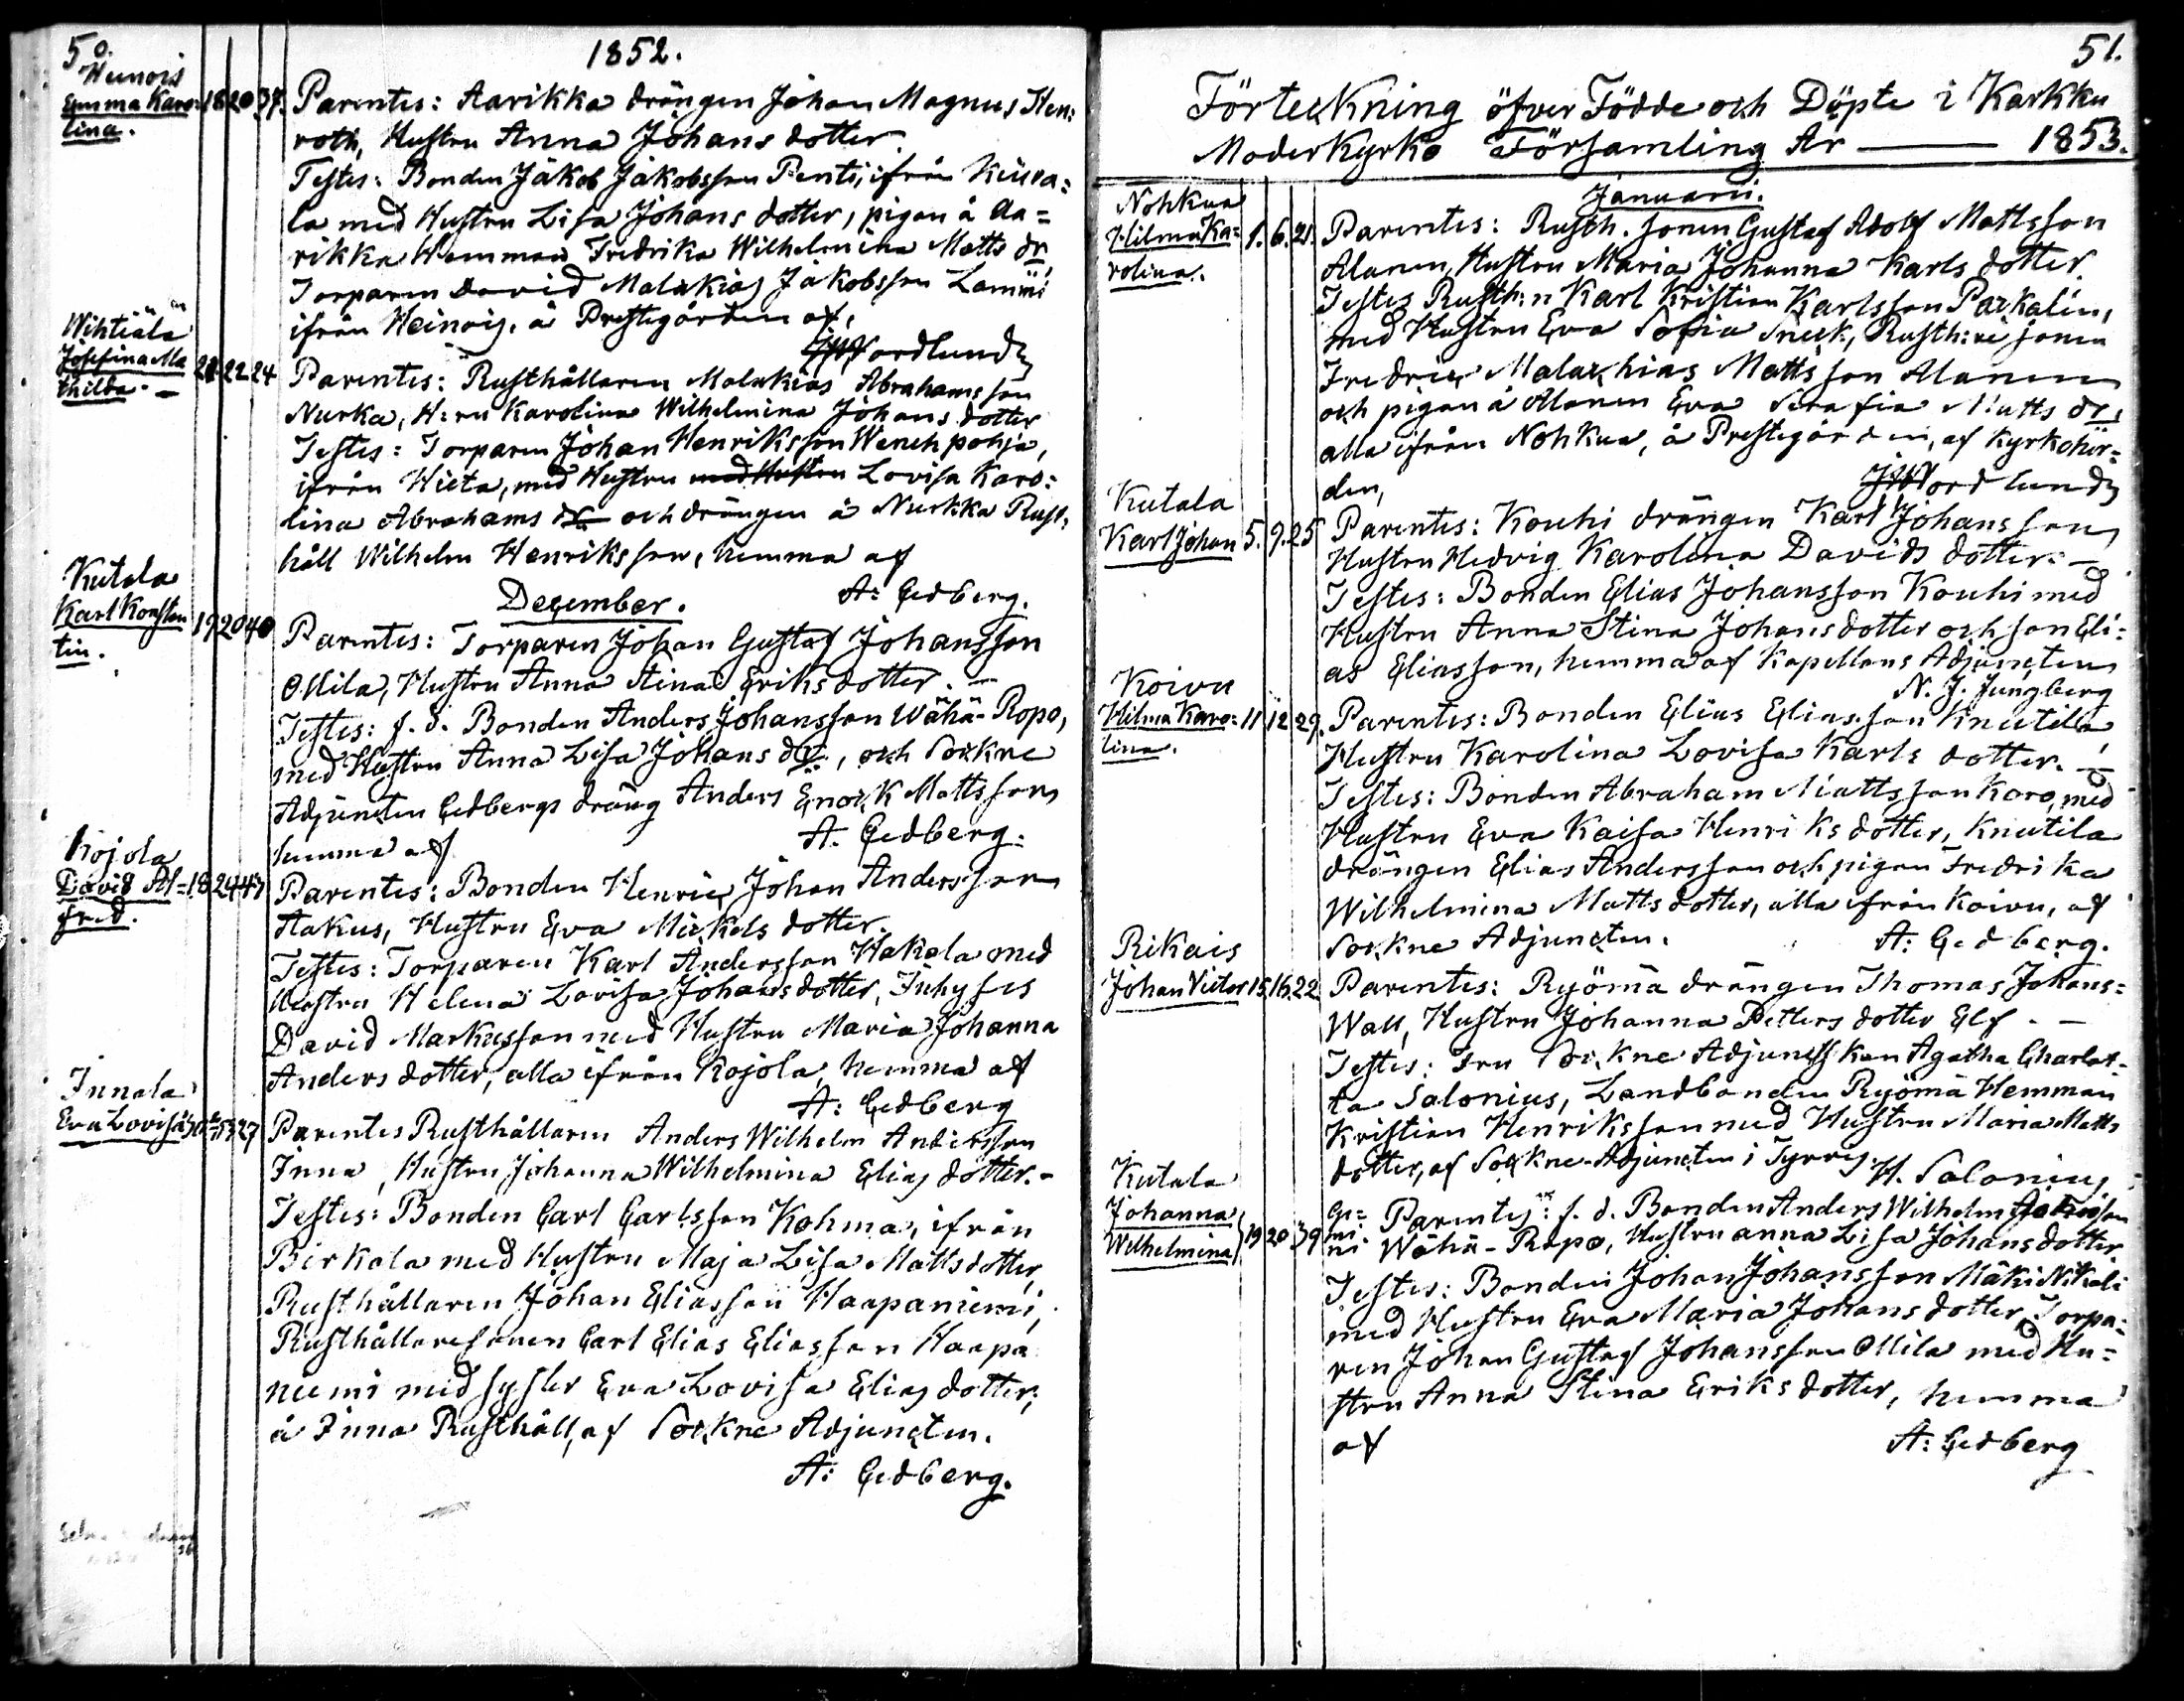 50.
1852.
Heinois
Emma Karo=
lina.
18 20 37.
Parentes: Aarikka drängen Johan Magnus Hen:
roth, Hustru Anna Johans dotter.
Testes: Bonden Jakob Jakobsson Penti, ifrån Kiura=
la med Hustru Lisa Johans dotter, pigan å Aa=
rikka Hemman Fredrika Wilhelmina Matts dr,
Torparen David Malakias Jakobsson Lammi
ifrån Heinois, å Prestegården af,
Nordlund
Wihtiälä
Josefina Ma
thilda. -
21 22 24
Parentes: Rusthållaren Malakias Abrahamsson
Nurka, H:ru Karolina Wilhelmina Johans dotter
Testes: Torparen Johan Henriksson Wenehpohja,
ifrån Hieta, med Hustru med Hustru Lovisa Karo:
lina Abrahams dr och drängen å Nurkka Rust,
håll Wilhelm Henriksson, hemma af
A: Gedberg.
December.
Kutala
Karl Konstan
tin.
19 20 40
Parentes: Torparen Johan Gustaf Johansson
Ollila, Hustru Anna Stina Eriks dotter. -
Testes: f. d. Bonden Anders Johansson Wähä-Ropo,
med Hustru Anna Lisa Johans dr, och Sockne
Adjuncten Gedbergs dräng Anders Enock Mattsson
hemma af
A. Gedberg.
Kojola
David Al=
fred.
18 24 43
Parentes: Bonden Henric Johan Andersson
Stakus, Hustru Eva Mickels dotter.
Testes: Torparen Karl Andersson Hakala med
Hustru Helena Lovisa Johans dotter, Inhyses
David Markusson med Hustru Maria Johanna
Anders dotter, alla ifrån Kojola, hemma af
A: Gedberg
Innala
Eva Lovisa
27
Parentes Rusthållaren Anders Wilhelm Andersson
Inna, Hustru Johanna Wilhelmina Elias dotter. -
Testes: Bonden Carl Carlsson Kohma, ifrån
Birkala med Hustru Maja Lisa Mattsdotter,
Rusthållaren Johan Eliasson Haapaniemi,
Rusthållaresonen Carl Elias Eliasson Haapa
niemi med syster Eva Lovisa Elias dotter,
å Inna Rusthåll, af Sockne Adjuncten.
A: Gedberg.
51.
Förteckning öfver Födde och Döpte i Karkku
Moderkyrko Församling År — 1853.
Januarii.
Nohkua
Hilma Ka=
rolina.
1. 6. 21.
Parentes: Rusth. sonen Gustaf Adolf Mattsson
Alanen, Hustru Maria Johanna Karls dotter.
Testes Rusth:n Karl Kristian Karlsson Parkalin,
med Hustru Eva Sofia Sneck, Rusth:re sonen
Fredric Malackias Mattsson Alanen
och pigan å Alanen Eva Serafia Matts dr
alla ifrån Nohkua, å Prestegården, af Kyrkoher=
den,
Nordlund
Kutala
Karl Johan
5. 9. 25
Parentes: Kouhi drängen Karl Johansson
Hustru Hedvig Karolina Davids dotter. -
Testes: Bonden Elias Johansson Kouhi med
Hustru Anna Stina Johansdotter och son Eli=
as Eliasson, hemma af Kapellans Adjuncten
N. J. Jungberg
Koivu
Hilma Karo=
lina.
11 12 29.
Parentes: Bonden Elias Eliasson Knutila
Hustru Karolina Lovisa Karls dotter. -
Testes: Bonden Abraham Mattsson Karo, med
Hustru Eva Kaisa Henriks dotter, Knutila
drängen Elias Andersson och pigan Fredrika
Wilhelmina Matts dotter, alla ifrån Koivu, af
Sockne Adjuncten.
A: Gedberg.
Rikais
Johan Victor
15 16. 22
Parentes: Ryömä drängen Thomas Johans=
Wall, Hustru Johanna Petters dotter Elf. -
Testes: Fru Sockne Adjunctskan Agatha Charlot=
ta Salonius, Landbonden Ryömä Hemman
Kristian Henriksson med Hustru Maria Matts
dotter, af Sockne-Adjuncten i Tyrvis.
H. Salonius
Kutala
Johanna,
Wilhelmina
19 20 39
Ge=
mi
ni
Parentes: f. d. Bonden Anders Wilhelm
Wähä-Ropo, Hustru Anna Lisa Johans dotter
Testes: Bonden Johan Johansson Mäki Nikali
med Hustru Eva Maria Johans dotter, Torpa=
ren Johan Gustaf Johansson Ollila med Hu=
stru Anna Stina Eriks dotter, hemma
af
A: Gedberg